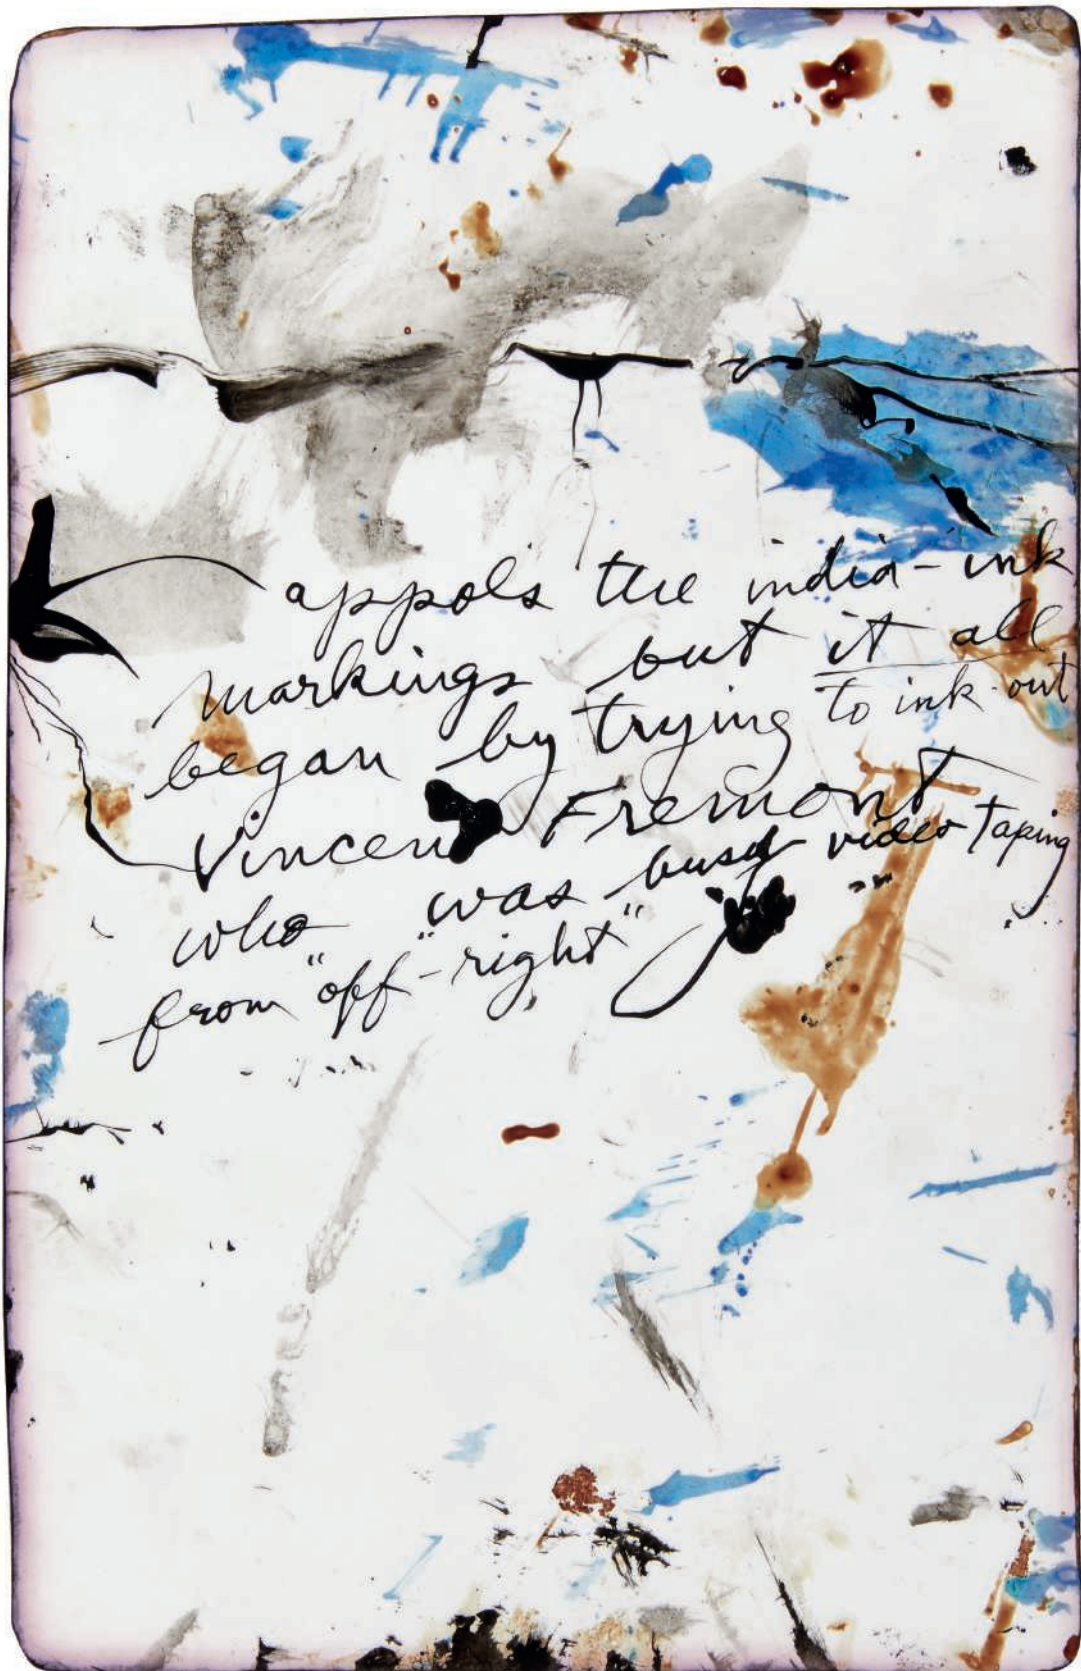 appols the india-ink
markings but it all
began by trying to ink-out
Vincent Fremont
who was busy video taping
from "off"-right"